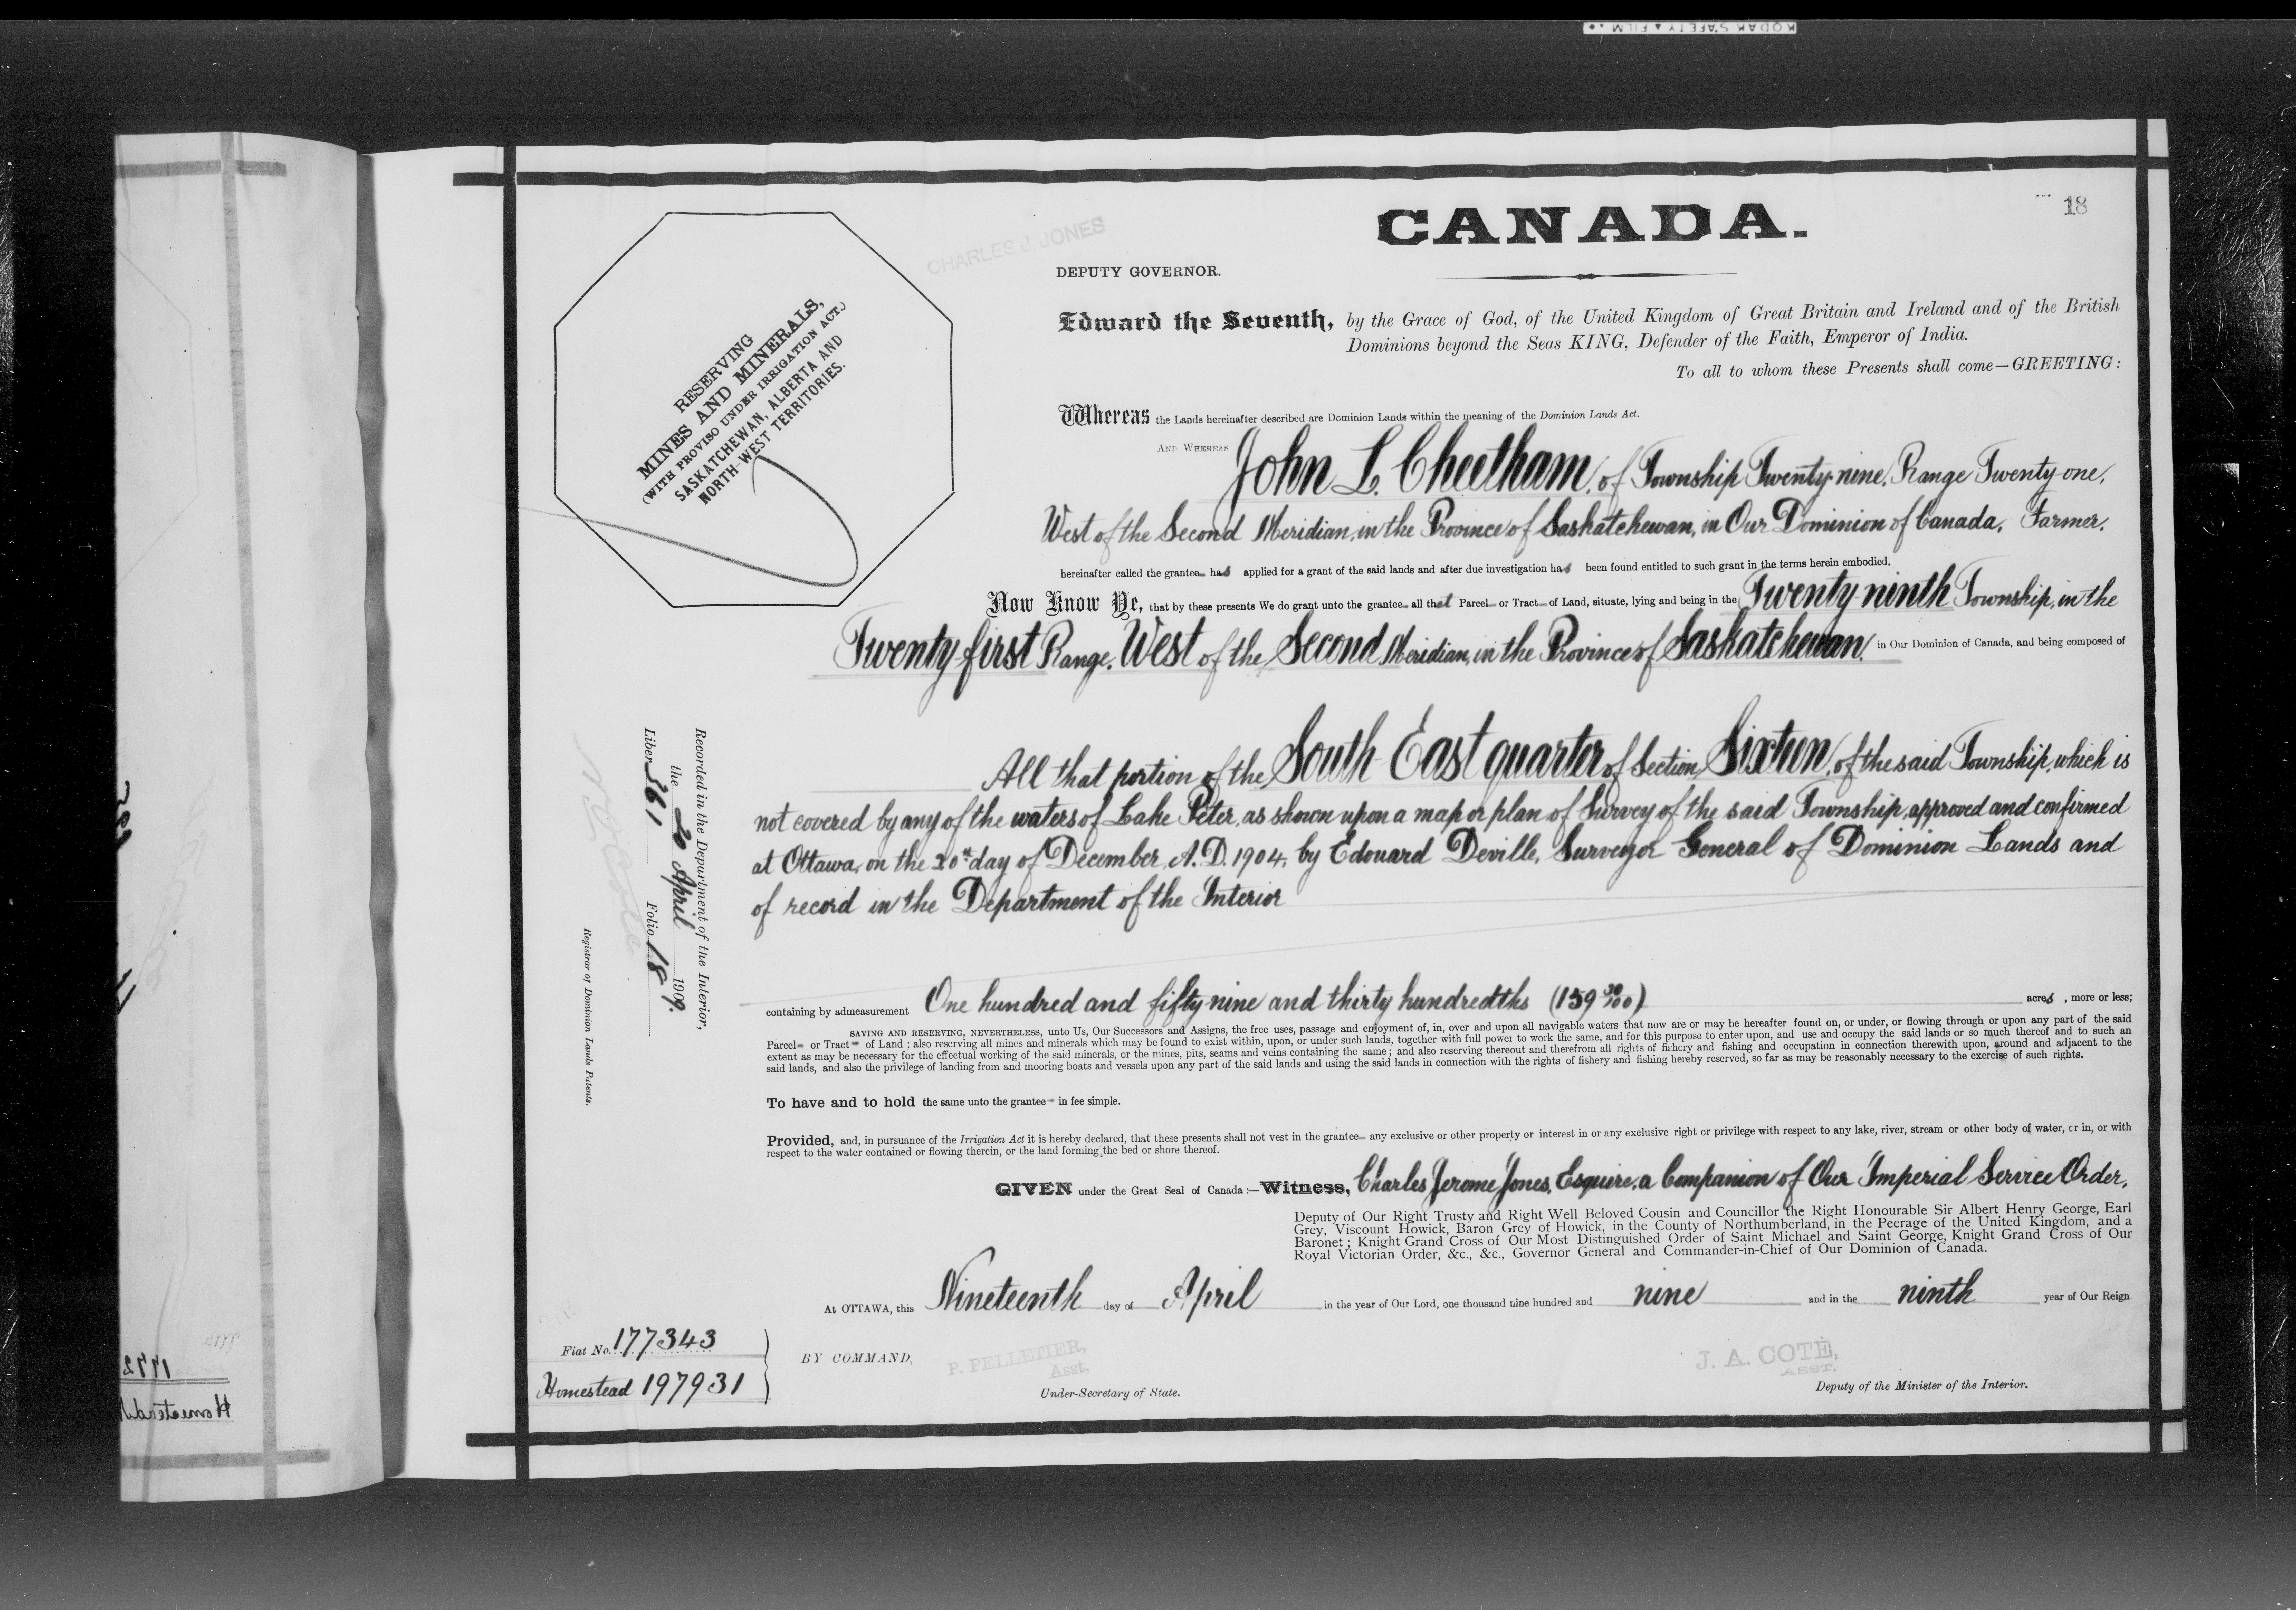 KODAK SAFETY FILM
18
CANADA.
CHARLES J. JONES
DEPUTY GOVERNOR.
RESERVING
MINES AND MINERALS,
(WITH PROVISO UNDER IRRIGATION ACT.)
SASKATCHEWAN, ALBERTA AND
NORTH-WEST TERRITORIES.
Edward the Seventh, by the Grace of God, of the United Kingdom of Great Britain and Ireland and of the British
Dominions beyond the Seas KING, Defender of the Faith, Emperor of India.
To all to whom these Presents shall come—GREETING:
Whereas the Lands hereinafter described are Dominion Lands within the meaning of the Dominion Lands Act.
AND WHEREAS John L. Cheetham, of Township Twenty-nine, Range Twenty-one,
West of the Second Meridian, in the Province of Saskatchewan, in Our Dominion of Canada, Farmer,
hereinafter called the grantee has applied for a grant of the said lands and after due investigation has been found entitled to such grant in the terms herein embodied.
Now Know Ye, that by these presents We do grant unto the grantee all that Parcel or Tract of Land, situate, lying and being in the Twenty ninth Township, in the
Twenty-first Range, West of the Second Meridian, in the Province of Saskatchewan, in Our Dominion of Canada, and being composed of
All that portion of the South East quarter of Section Sixteen, of the said Township, which is
not covered by any of the waters of Lake Peter, as shown upon a map or plan of Survey of the said Township, approved and confirmed
at Ottawa, on the 20th day of December, A.D. 1904, by Edouard Deville, Surveyor General of Dominion Lands and
of record in the Department of the Interior
containing by admeasurement One hundred and fifty-nine and thirty hundredths (159 30/100) acres, more or less;
SAVING AND RESERVING, NEVERTHELESS, unto Us, Our Successors and Assigns, the free uses, passage and enjoyment of, in, over and upon all navigable waters that now are or may be hereafter found on, or under, or flowing through or upon any part of the said
Parcel or Tract of Land; also reserving all mines and minerals which may be found to exist within, upon, or under such lands, together with full power to work the same, and for this purpose to enter upon, and use and occupy the said lands or so much thereof and to such an
extent as may be necessary for the effectual working of the said minerals, or the mines, pits, seams and veins containing the same; and also reserving thereout and therefrom all rights of fishery and fishing and occupation in connection therewith upon, around and adjacent to the
said lands, and also the privilege of landing from and mooring boats and vessels upon any part of the said lands and using the said lands in connection with the rights of fishery and fishing hereby reserved, so far as may be reasonably necessary to the exercise of such rights.
To have and to hold the same unto the grantee in fee simple.
Provided, and, in pursuance of the Irrigation Act it is hereby declared, that these presents shall not vest in the grantee any exclusive or other property or interest in or any exclusive right or privilege with respect to any lake, river, stream or other body of water, or in, or with
respect to the water contained or flowing therein, or the land forming the bed or shore thereof.
GIVEN under the Great Seal of Canada:—Witness, Charles Jerome Jones, Esquire, a Companion of Our Imperial Service Order,
Deputy of Our Right Trusty and Right Well Beloved Cousin and Councillor the Right Honourable Sir Albert Henry George, Earl
Grey, Viscount Howick, Baron Grey of Howick, in the County of Northumberland, in the Peerage of the United Kingdom, and a
Baronet; Knight Grand Cross of Our Most Distinguished Order of Saint Michael and Saint George, Knight Grand Cross of Our
Royal Victorian Order, &c., &c., Governor General and Commander-in-Chief of Our Dominion of Canada.
At OTTAWA, this Nineteenth day of April in the year of Our Lord, one thousand nine hundred and nine and in the ninth year of Our Reign
BY COMMAND,
P. PELLETIER,
Asst.
Under-Secretary of State.
J. A. COTÉ,
ASST.
Deputy of the Minister of the Interior.
Fiat No. 177343
Homestead 197931
Recorded in the Department of the Interior,
the 20 April 1909.
Liber 361 Folio 18
N. O. Coté
Registrar of Dominion Lands Patents.
1772
Homestead